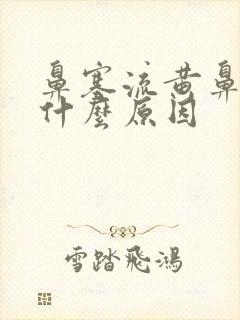 鼻塞流黄鼻
什麼原因
雪踏飛鴻